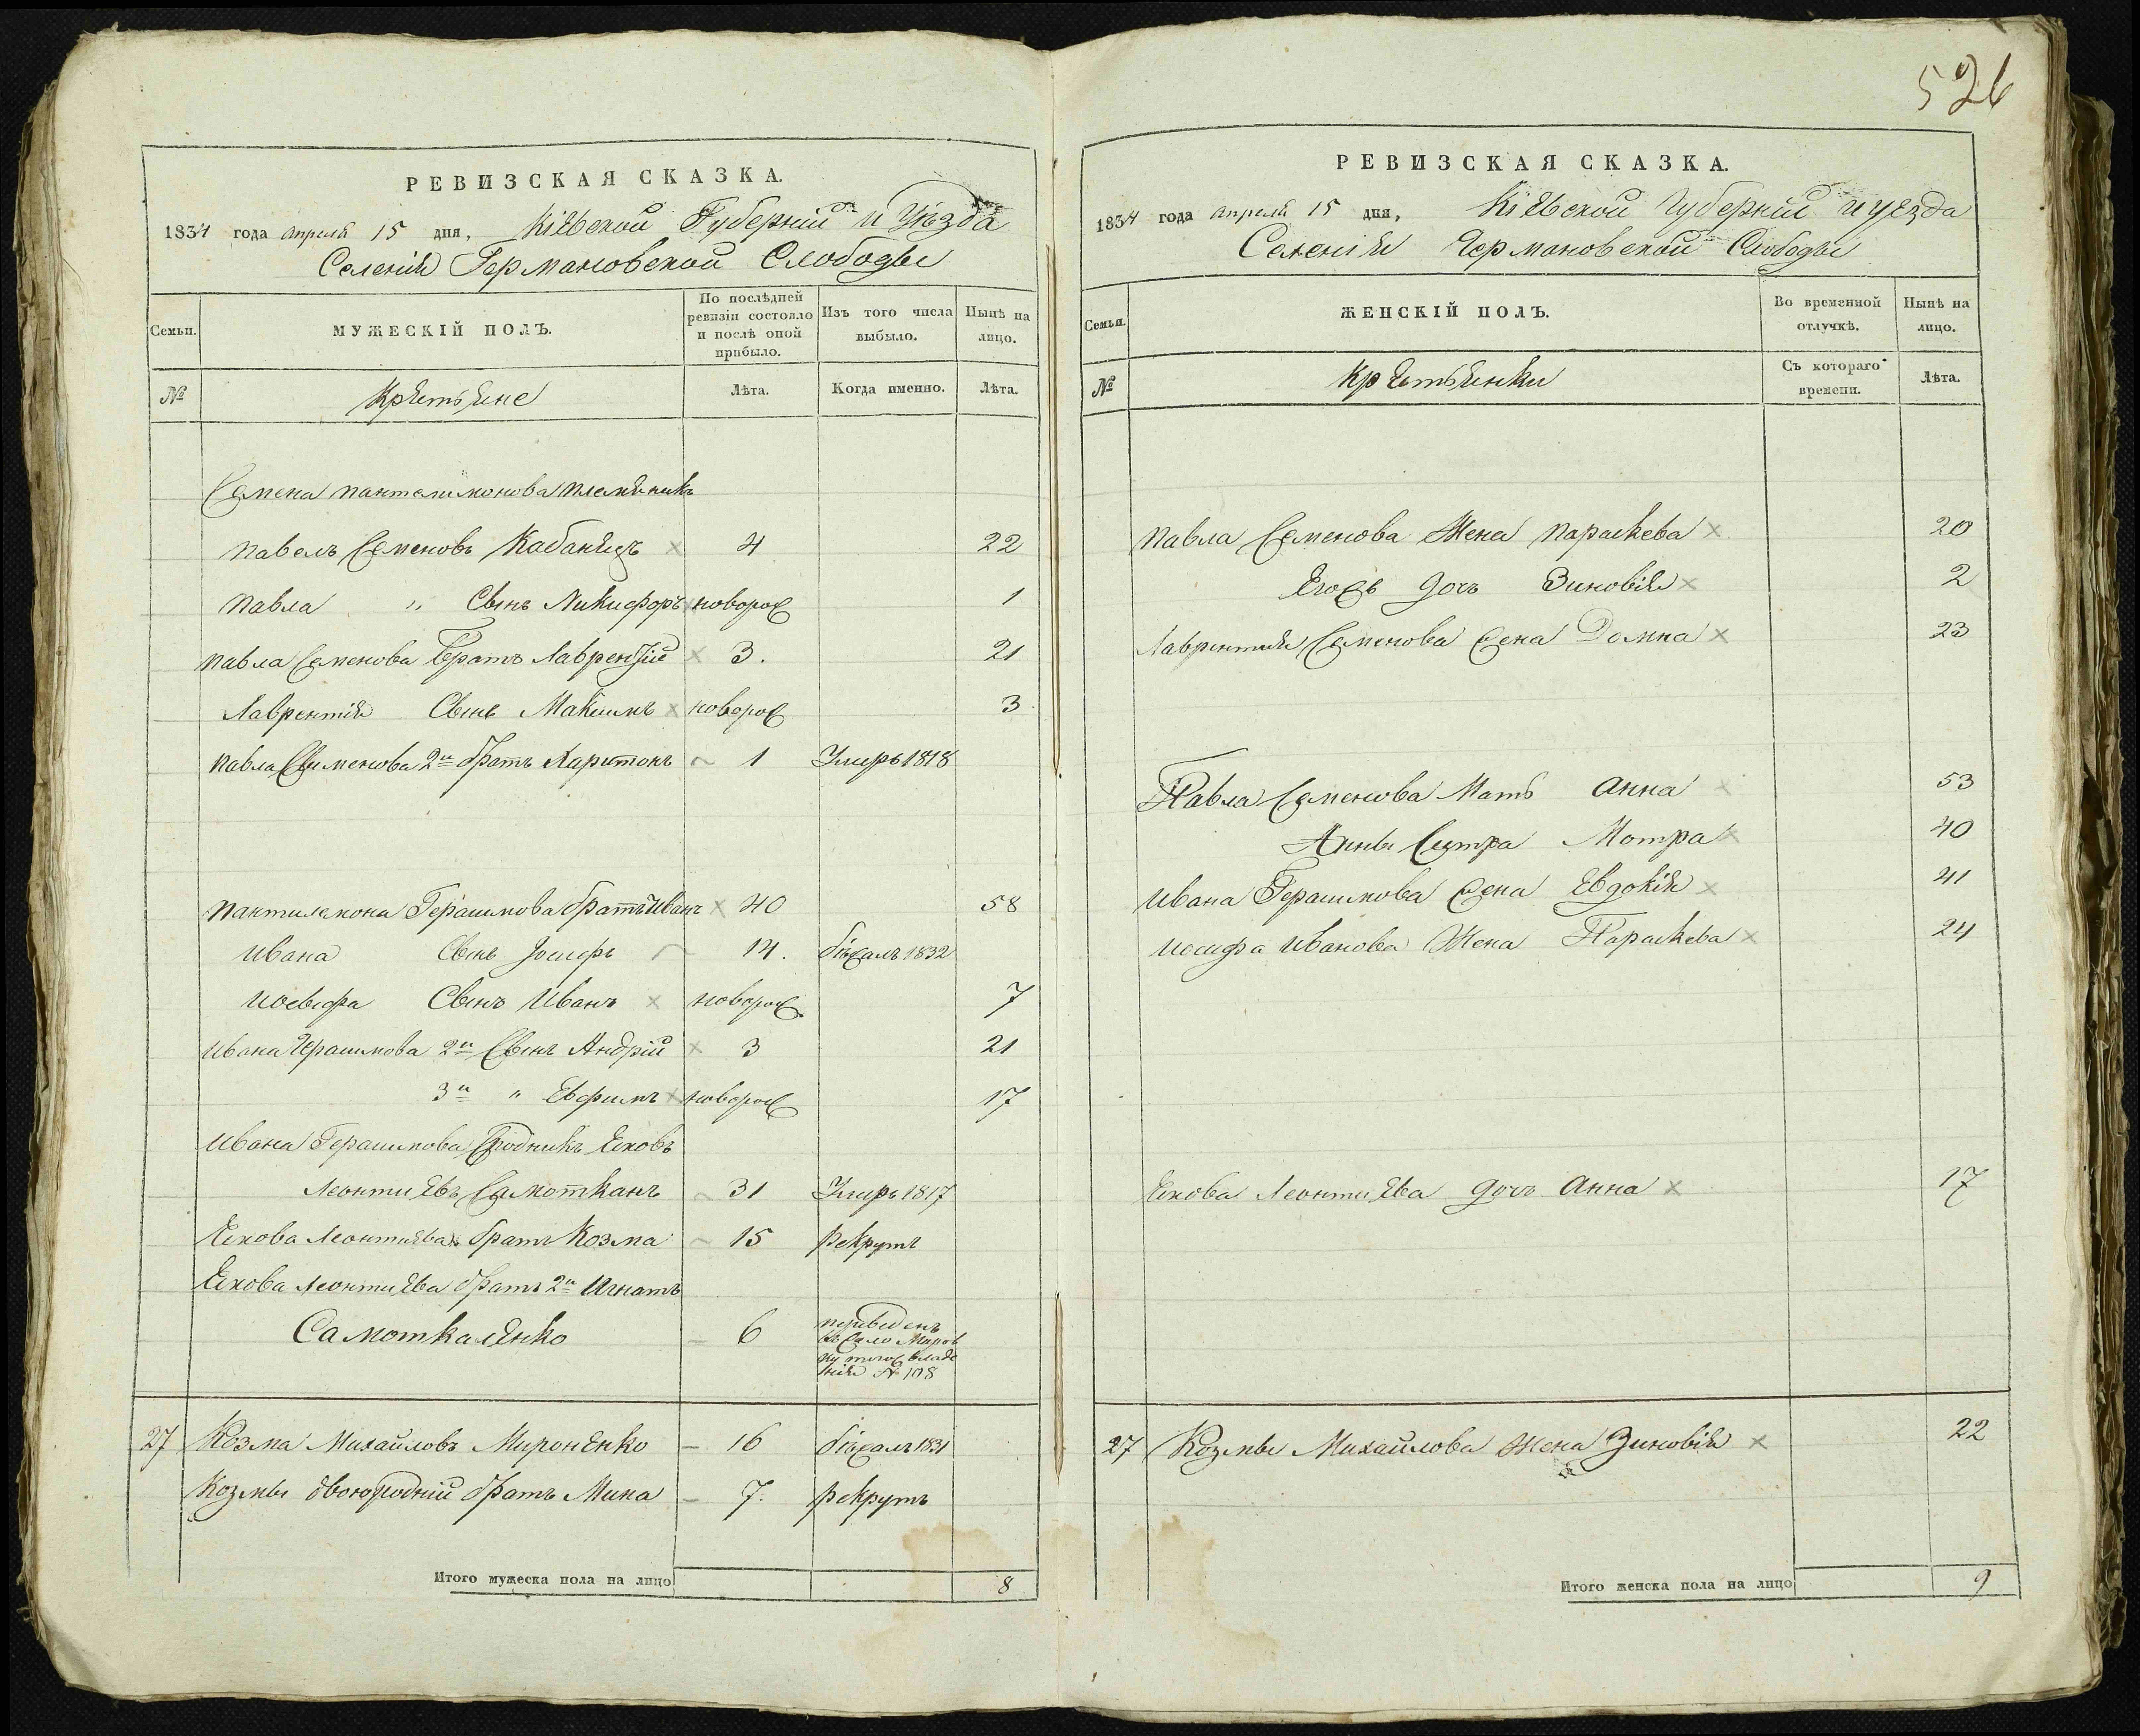 526
РЕВИЗСКАЯ СКАЗКА.
1834 года апреля 15 дня, Кіевской Губерніи и Уѣзда
Селенія Германовской Слободы
Семьи.
МУЖЕСКІЙ ПОЛЪ.
По послѣдней ревизіи состояло и послѣ оной прибыло.
Изъ того числа выбыло.
Нынѣ на лицо.
№
Крестьяне
Лѣта.
Когда именно.
Лѣта.
Семена Пантелимонова племяникъ
Павелъ Семеновъ Кабанецъ 4 22
Павла " Сынъ Никифоръ новорож 1
Павла Семенова Братъ Лаврентій 3. 21
Лаврентія Сынъ Максимъ новорож 3
Павла Семенова 2й братъ Харитонъ 1 Умеръ 1818
Пантилемона Герасимова братъ Иванъ 40 58
Ивана Сынъ Іосифъ 14. бѣжалъ 1832
Иосифа Сынъ Иванъ новорож 7
Ивана Герасимова 2й Сынъ Андрій 3 21
3й " Евфимъ новорож 17
Ивана Герасимова Сродникъ Яковъ
Леонтиевъ Самотканъ 31 Умеръ 1817
Якова Леонтиева братъ Козма 15 рекрутъ
Якова Леонтиева братъ 2й Игнатъ
Самоткаленко 6 переведенъ
въ Село Миров
ку тогож владе
нія № 108
27 Козма Михайловъ Мироненко 16 бѣжалъ 1831
Козмы двоюродній братъ Мина 7. рекрутъ
Итого мужеска пола на лицо 8
РЕВИЗСКАЯ СКАЗКА.
1834 года апреля 15 дня, Кіевской Губерніи и уезда
Селенія Германовской Слободы
Семьи.
ЖЕНСКІЙ ПОЛЪ.
Во временной отлучкѣ.
Нынѣ на лицо.
№
Крестьянки
Съ котораго времени.
Лѣта.
Павла Семенова Жена Параскева 20
Егожъ дочь Зиновія 2
Лаврентия Семенова жена Домна 23
Павла Семенова Мать Анна 53
Анны Сестра Мотра 40
Ивана Герасимова жена Евдокія 41
Иосифа Иванова Жена Параскева 24
Якова Леонтиева дочь Анна 17
27 Козмы Михайлова Жена Зиновія 22
Итого женска пола на лицо 9